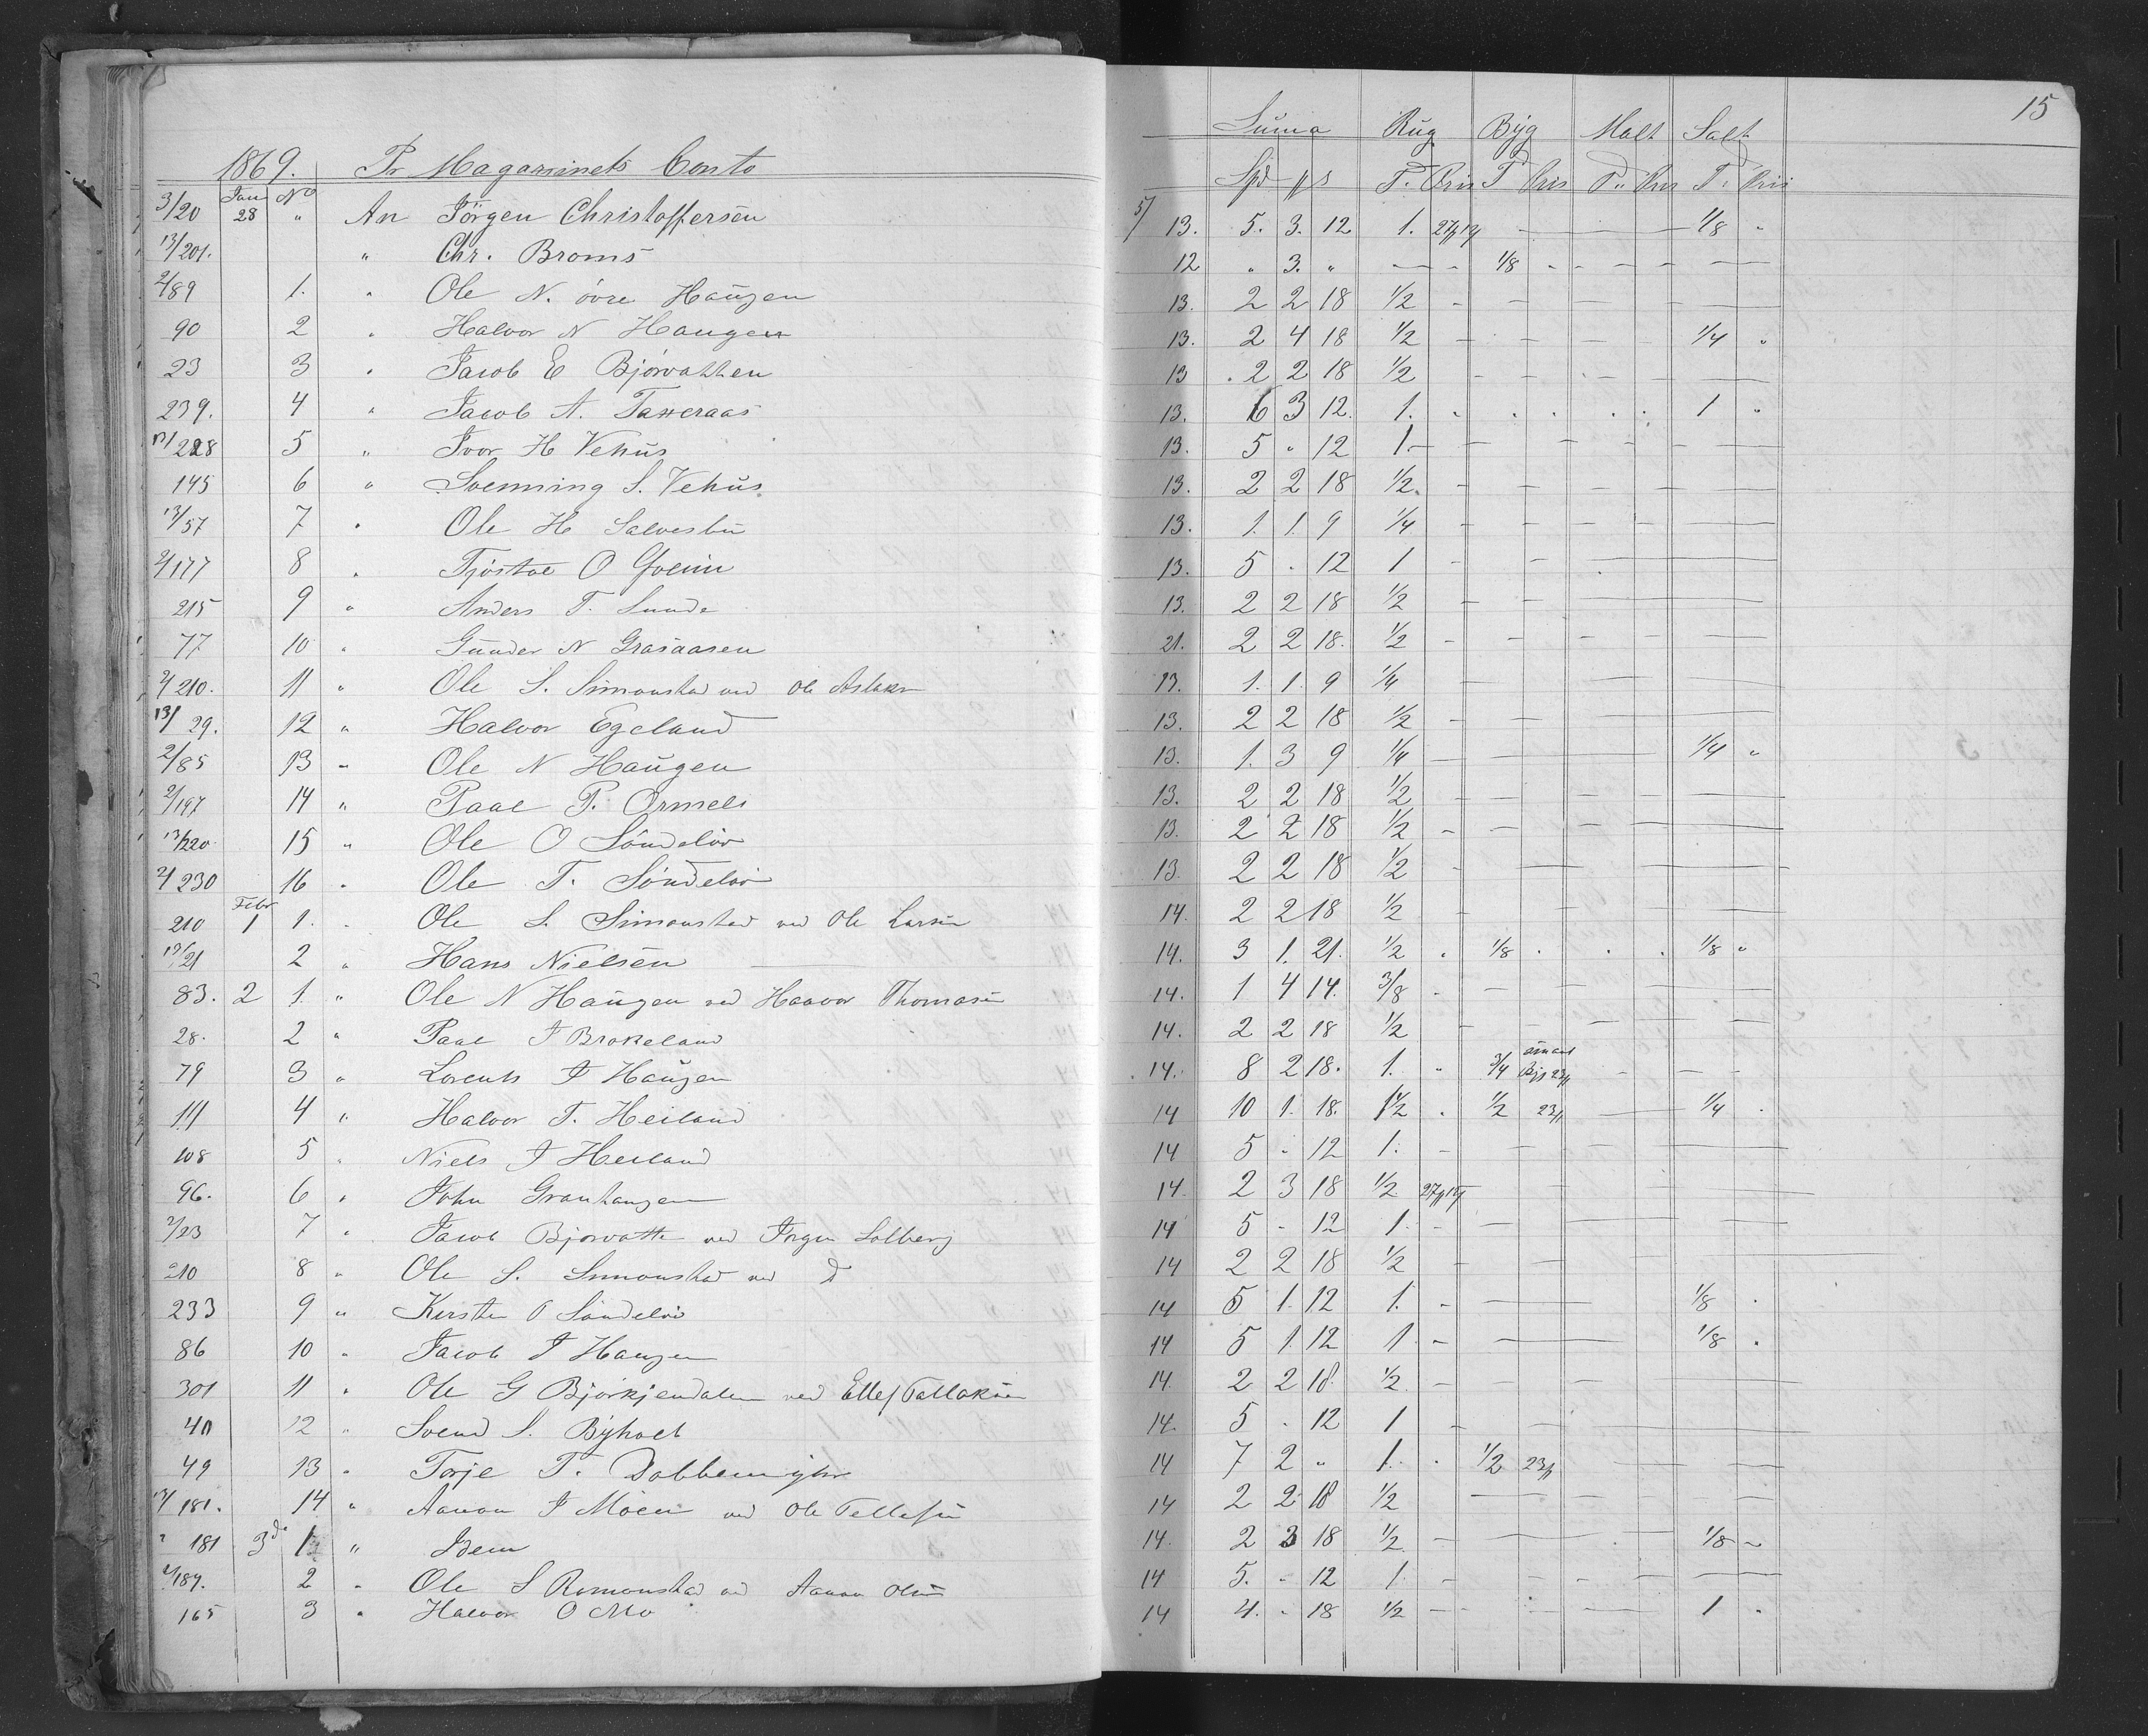 15
Suma Rug Byg Malt Salt
1869. Pr Magazinets Conto Spd ƒ s T. Pris T Pris T. Pris T. Pris
3/20 Jan 28 No " An Jörgen Christoffersen 5/ 13. 5. 3. 12 1. — 1/8 "
13/201. " Chr. Broms 12 " 3. " — 1/8 - - - - —
2/89 1. " Ole N. övre Haugen 13. 2 2 18 1/2 - — — —
90 2 " Halvor N Haugen 13. 2 4 18 1/2 - - - - 1/4 "
23 3 " Jacob E Bjørvatten 13 2 2 18 1/2 - - - - —
239. 4 " Jacob A. Taxeraas 13. 6 3 12. 1. " . . . . 1 "
13/228 5 " Ivor H Vehus 13. 5 " 12 1. — — — —
145 6 " Svenning S. Vehus 13. 2 2 18 1/2. - — — —
13/57 7 " Ole H Salvesbu 13. 1. 1. 9 1/4 - - - - —
2/177 8 " Tjöstol O 13. 5 " 12 1 - - —
215 9 " Anders T. Sunde 13. 2 2 18 1/2 - - —
77 10 " Gunder N Grasaasen 21. 2 2 18. 1/2 - - - - —
2/210. 11 " Ole S. Simonstad ved Ole Aslaks 13. 1. 1. 9 1/4 — — —
13/29. 12 " Halvor Egeland 13. 2 2 18 1/2 - - —
2/85 13 " Ole N Haugen 13. 1. 3 9 1/4 — — — 1/4 "
2/197 14 " Paal P. Ormeli 13. 2 2 18 1/2 - - - - —
13/220. 15 " Ole O Söndelöv 13. 2 2 18 1/2 - - - - —
2/230 16 " Ole T. Söndelöv 13. 2 2 18 1/2 - — — —
210 Febr 1 1. " Ole S. Simonstad ved Ole Larsen 14. 2 2 18 1/2 - - — —
13/21 2 " Hans Nielsen — 14. 3 1. 21. 1/2 " 1/8 . . . 1/8 "
83. 2 1. " Ole N Haugen ved Haavor Thomasen 14. 1 4 14. 3/8 - - - - —
28. 2 " Paal J Brokeland 14. 2 2 18 1/2 - - - - —
79 3 " Lorents J Haugen 14. 8 2 18. 1. " 3/4 Byg 23ƒ - - —
111 4 " Halvor T. Heiland 14 10 1. 18. 1 1/2 " 1/2 23ƒ — 1/4 "
108 5 " Niels J Heiland 14 5 " 12 1. - — — —
96. 6 " John Granhaugen 14. 2 3 18 1/2 — — —
2/23 7 " Jacob Bjorvatten ved Jörgen Solberg 14 5 - 12 1. - — — —
210 8 " Ole S. Simonstad ved D 14 2 2 18 1/2 - — —
233 9 " Kirsten O Söndelöv 14 5 1. 12 1. - — 1/8 "
86 10 " Jacob J Haugen 14 5 1. 12 1 - — 1/8 "
301 11 " Ole G Björkjendalen ved Ellef Tallaksen 14. 2 2 18. 1/2 - - — —
40 12 " Svend S. Byholt 14. 5 - 12 1 - — —
49 13 " Torje T. 14 7 2 " 1. " 1/2 23ƒ — — —
13/181. 14 " Aanon J Moen ved Ole Tellefsen 14 2 2 18 1/2 — — — —
" 181 3d 1 " Idem 14. 2 3 18 1/2 - — — 1/8 -
2/187. 2 " Ole S Rimonstad ved Aanon Olsen 14 5. - 12 1. - - - - —
165 3 " Halvor O Mo 14 4. " 18 1/2 - - — 1 "